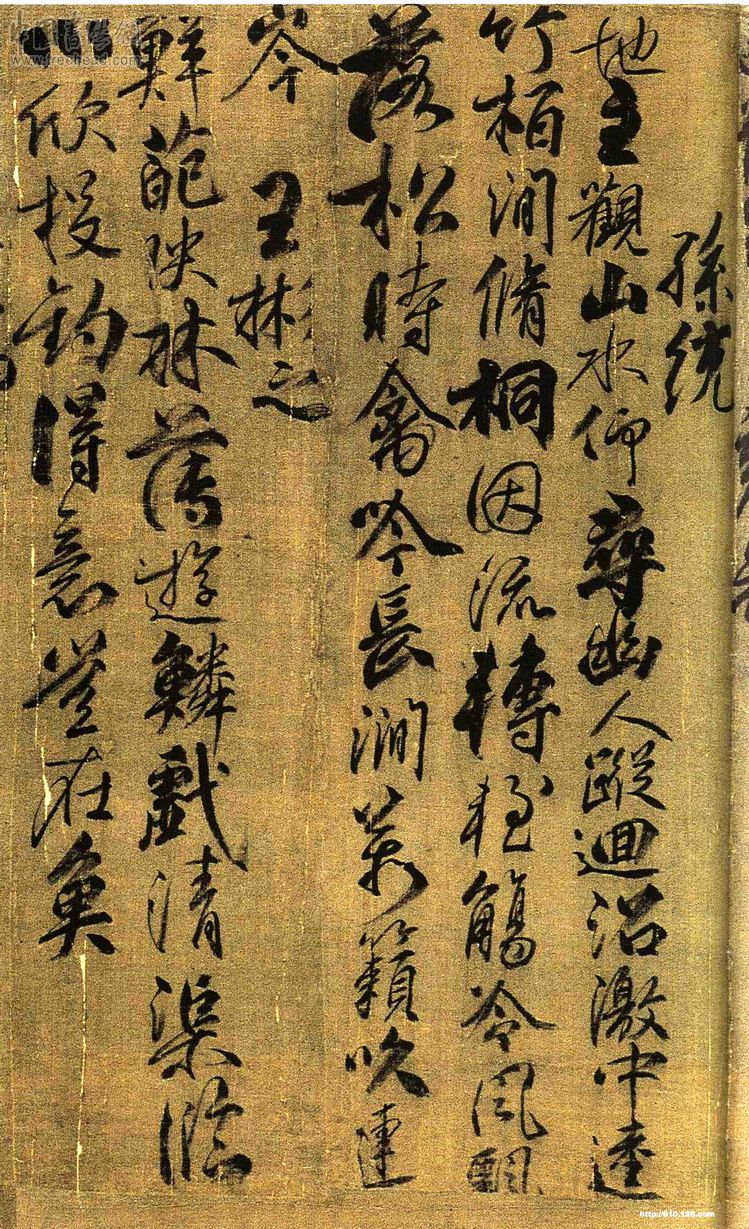 孫統
地主觀山水仰尋幽人蹤迴沼激中逵
竹栢澗脩桐因流轉輕觴冷風飄
落松時禽吟長澗萬籟吹連
岑 王彬之
鮮葩映林薄遊鱗戲清渠臨
欣投釣得意豈在魚
http://610.126.com